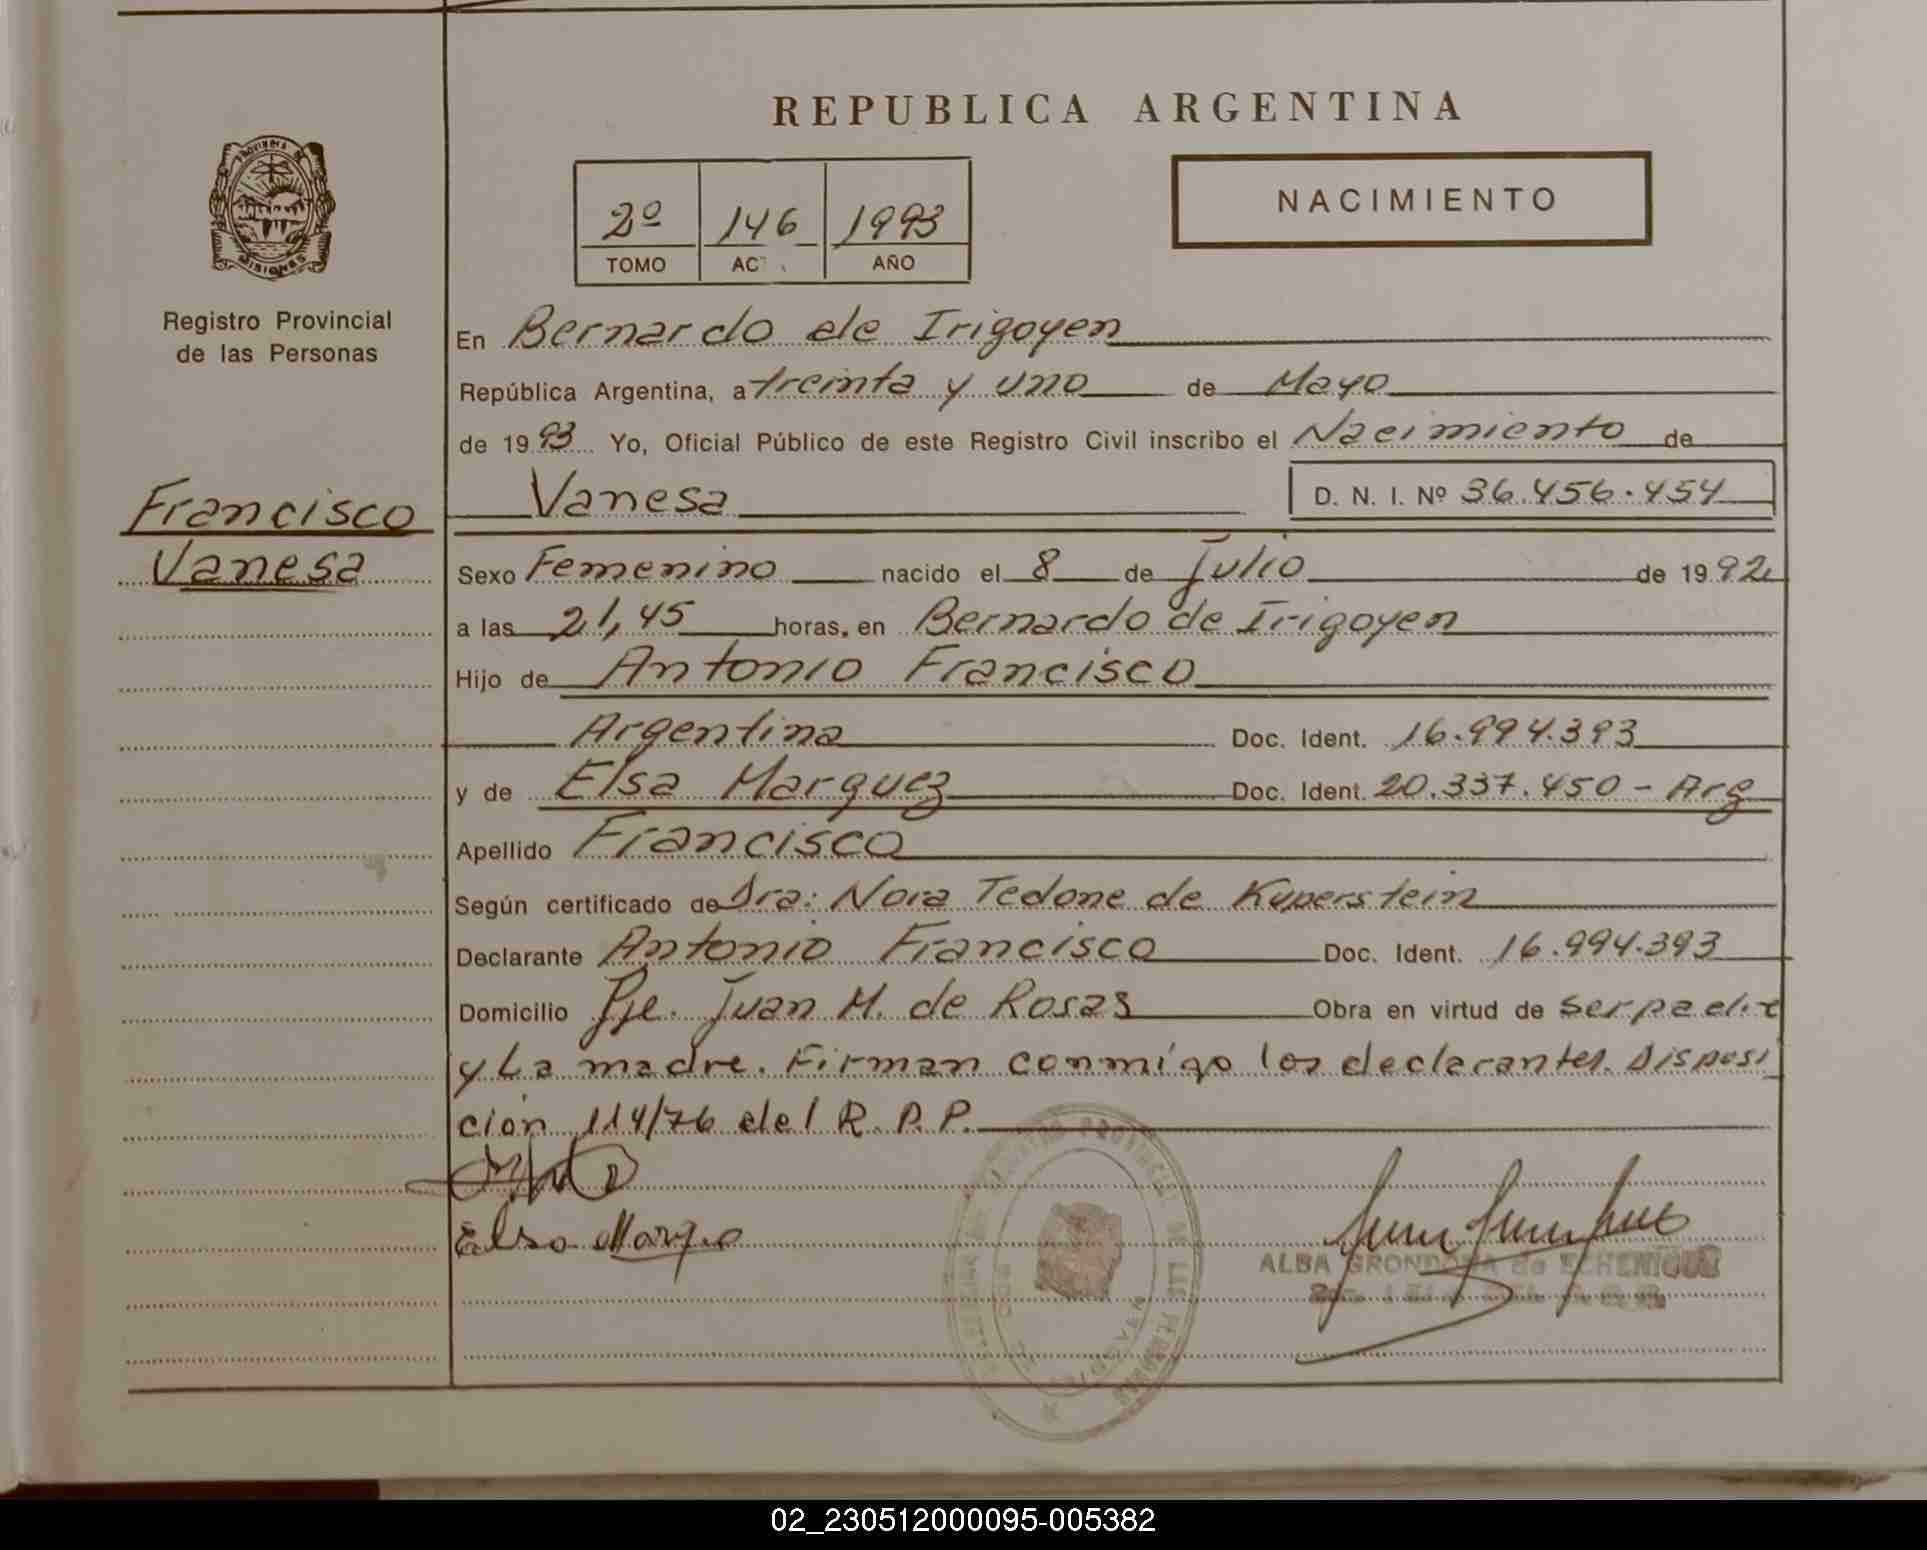 REPUBLICA ARGENTINA
PROVINCIA DE
MISIONES
Registro Provincial
de las Personas
2º 146 1993
TOMO ACT. AÑO
NACIMIENTO
En Bernardo de Irigoyen
República Argentina, a treinta y uno de Mayo
de 1993 Yo, Oficial Público de este Registro Civil inscribo el Nacimiento de
Francisco
Vanesa
Vanesa D. N. I. Nº 36.456.454
Sexo Femenino nacido el 8 de Julio de 1992
a las 21,45 horas, en Bernardo de Irigoyen
Hijo de Antonio Francisco
Argentina Doc. Ident. 16.994.393
y de Elsa Marquez Doc. Ident. 20.337.450 - Arg
Apellido Francisco
Según certificado de Dra: Nora Tedone de Kuperstein
Declarante Antonio Francisco Doc. Ident. 16.994.393
Domicilio Pje. Juan M. de Rosas Obra en virtud de ser padre
y La madre. Firman conmigo los declarantes. Disposi
ción 114/76 del R. P. P.
Elsa Marque
ALBA GRONDONA de ECHENIQUE
02_230512000095-005382